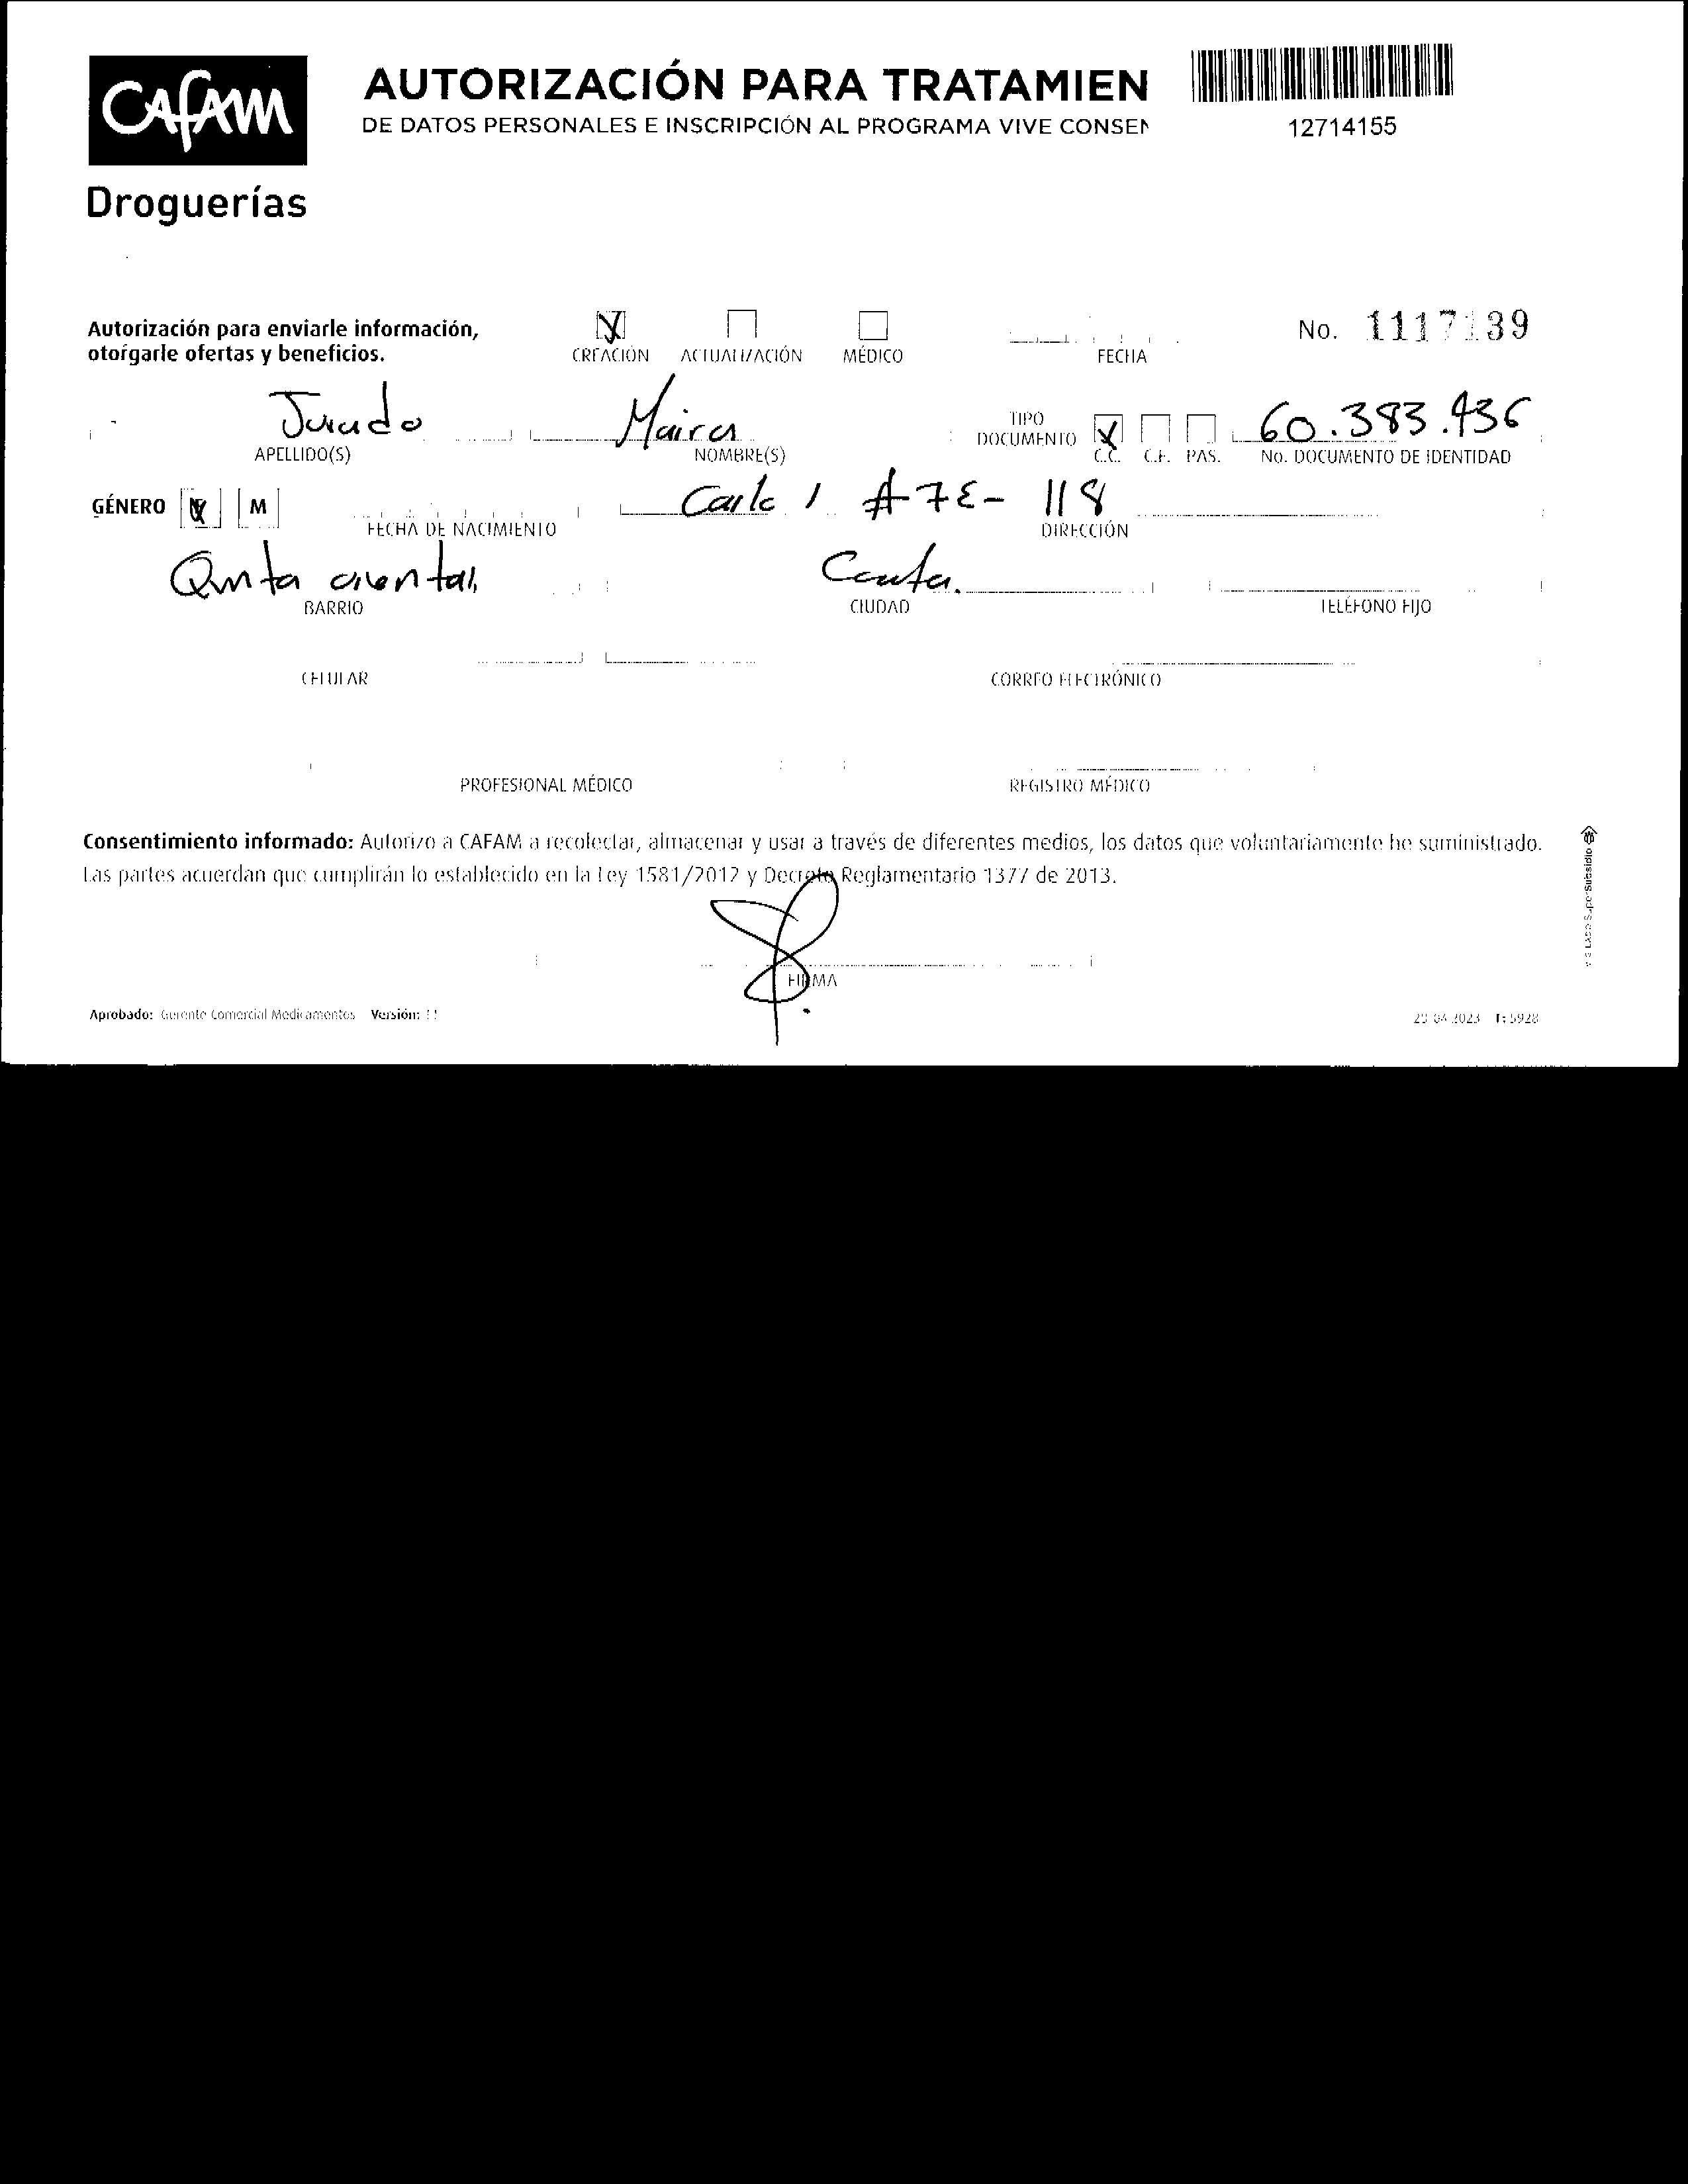 CAFAM
Droguerías
AUTORIZACIÓN PARA TRATAMIEN
DE DATOS PERSONALES E INSCRIPCIÓN AL PROGRAMA VIVE CONSEN
12714155
Autorización para enviarle información,
otorgarle ofertas y beneficios.
CREACIÓN ACTUALIZACIÓN MÉDICO
FECHA
No. 1117139
Jurado Maira
APELLIDO(S) NOMBRE(S)
TIPO
DOCUMENTO
X
C.C. C.E. PAS.
60.383.436
No. DOCUMENTO DE IDENTIDAD
GÉNERO F M
FECHA DE NACIMIENTO
1 #7E- 118
DIRECCIÓN
oriental
BARRIO CIUDAD TELÉFONO FIJO
CELULAR CORREO ELECTRÓNICO
PROFESIONAL MÉDICO REGISTRO MÉDICO
Consentimiento informado: Autorizo a CAFAM a recolectar, almacenar y usar a través de diferentes medios, los datos que voluntariamente he suministrado.
Las partes acuerdan que cumplirán lo establecido en la Ley 1581/2012 y Decreto Reglamentario 1377 de 2013.
FIRMA
Aprobado: Gerente Comercial Medicamentos Versión: 11
2023 F: 5928
SuperSubsidio